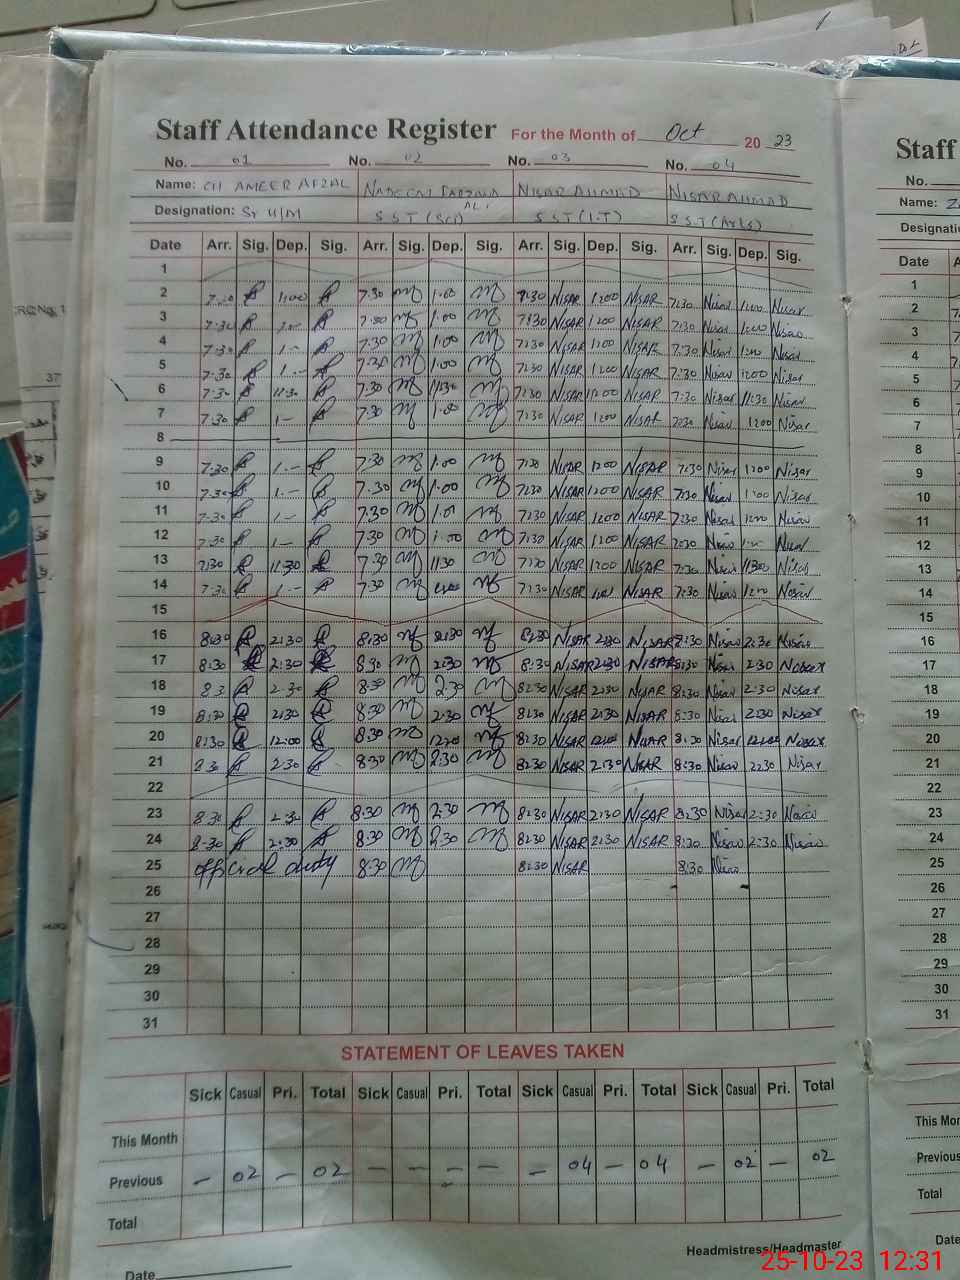 Staff Attendance Register For the Month of Oct 20 23
No. 01 No. 02 No. 03 No. 04
Name: CH AMEER AFZAL NISAR AHMAD NISAR AHMAD
Designation: S S T (I.T) S S T (Arts)
Date Arr. Sig. Dep. Sig. Arr. Sig. Dep. Sig. Arr. Sig. Dep. Sig. Arr. Sig. Dep. Sig.
1
2 7:30 1:00 7:30 1.00 7:30 NISAR 1:00 NISAR 7:30 Nisar 1:00 Nisar
3 7:30 1.- 7:30 1.00 7:30 NISAR 1:00 NISAR 7:30 Nisar 1:00 Nisar
4 7:30 1.- 7:30 1.00 7:30 NISAR 1:00 NISAR 7:30 Nisar 1:00 Nisar
5 7:30 1.- 7:30 1.00 7:30 NISAR 1:00 NISAR 7:30 Nisar 1:00 Nisar
6 7:30 11:30 7:30 11:30 7:30 NISAR NISAR 7:30 Nisar 11:30 Nisar
7 7:30 1- 7:30 1.00 7:30 NISAR 1:00 NISAR 7:30 Nisar 1:00 Nisar
8
9 7:30 1.- 7:30 1.00 7:30 NISAR 1:00 NISAR 7:30 Nisar 1:00 Nisar
10 7:30 1.- 7:30 1.00 7:30 NISAR 1:00 NISAR 7:30 Nisar 1:00 Nisar
11 7:30 1.- 7:30 1.00 7:30 NISAR 1:00 NISAR 7:30 Nisar 1:00 Nisar
12 7:30 1- 7:30 1.00 7:30 NISAR 1:00 NISAR 7:30 Nisar 1:00 Nisar
13 7:30 11:30 7:30 11:30 7:30 NISAR NISAR 7:30 Nisar 11:30 Nisar
14 7:30 1.- 7:30 7:30 NISAR NISAR 7:30 Nisar 1:00 Nisar
15
16 8:30 2:30 8:30 2:30 8:30 NISAR 2:30 NISAR 8:30 Nisar 2:30 Nisar
17 8:30 2:30 8:30 2:30 8:30 NISAR 2:30 NISAR 8:30 Nisar 2:30 Nisar
18 8:3 2:30 8:30 2:30 8:30 NISAR 2:30 NISAR 8:30 Nisar 2:30 Nisar
19 8:30 2:30 8:30 2:30 8:30 NISAR 2:30 NISAR 8:30 Nisar 2:30 Nisar
20 8:30 12:00 8:30 12:00 8:30 NISAR 12:00 NISAR 8:30 Nisar 12:00 Nisar
21 8:30 2:30 8:30 2:30 8:30 NISAR 2:30 NISAR 8:30 Nisar 2:30 Nisar
22
23 8:30 2:30 8:30 2:30 8:30 NISAR 2:30 NISAR 8:30 Nisar 2:30 Nisar
24 8:30 2:30 8:30 2:30 8:30 NISAR 2:30 NISAR 8:30 Nisar 2:30 Nisar
25 official duty 8:30 8:30 NISAR 8:30 Nisar
26
27
28
29
30
31
STATEMENT OF LEAVES TAKEN
Sick Casual Pri. Total Sick Casual Pri. Total Sick Casual Pri. Total Sick Casual Pri. Total
This Month
Previous - 02 - 02 - - - - - 04 - 04 - 02 - 02
Total
Headmistress/Headmaster
Date
Staff
No.
Name:
Date
1
2
3
4
5
6
7
8
9
10
11
12
13
14
15
16
17
18
19
20
21
22
23
24
25
26
27
28
29
30
31
This Mon
Previous
Total
Date
25-10-23 12:31